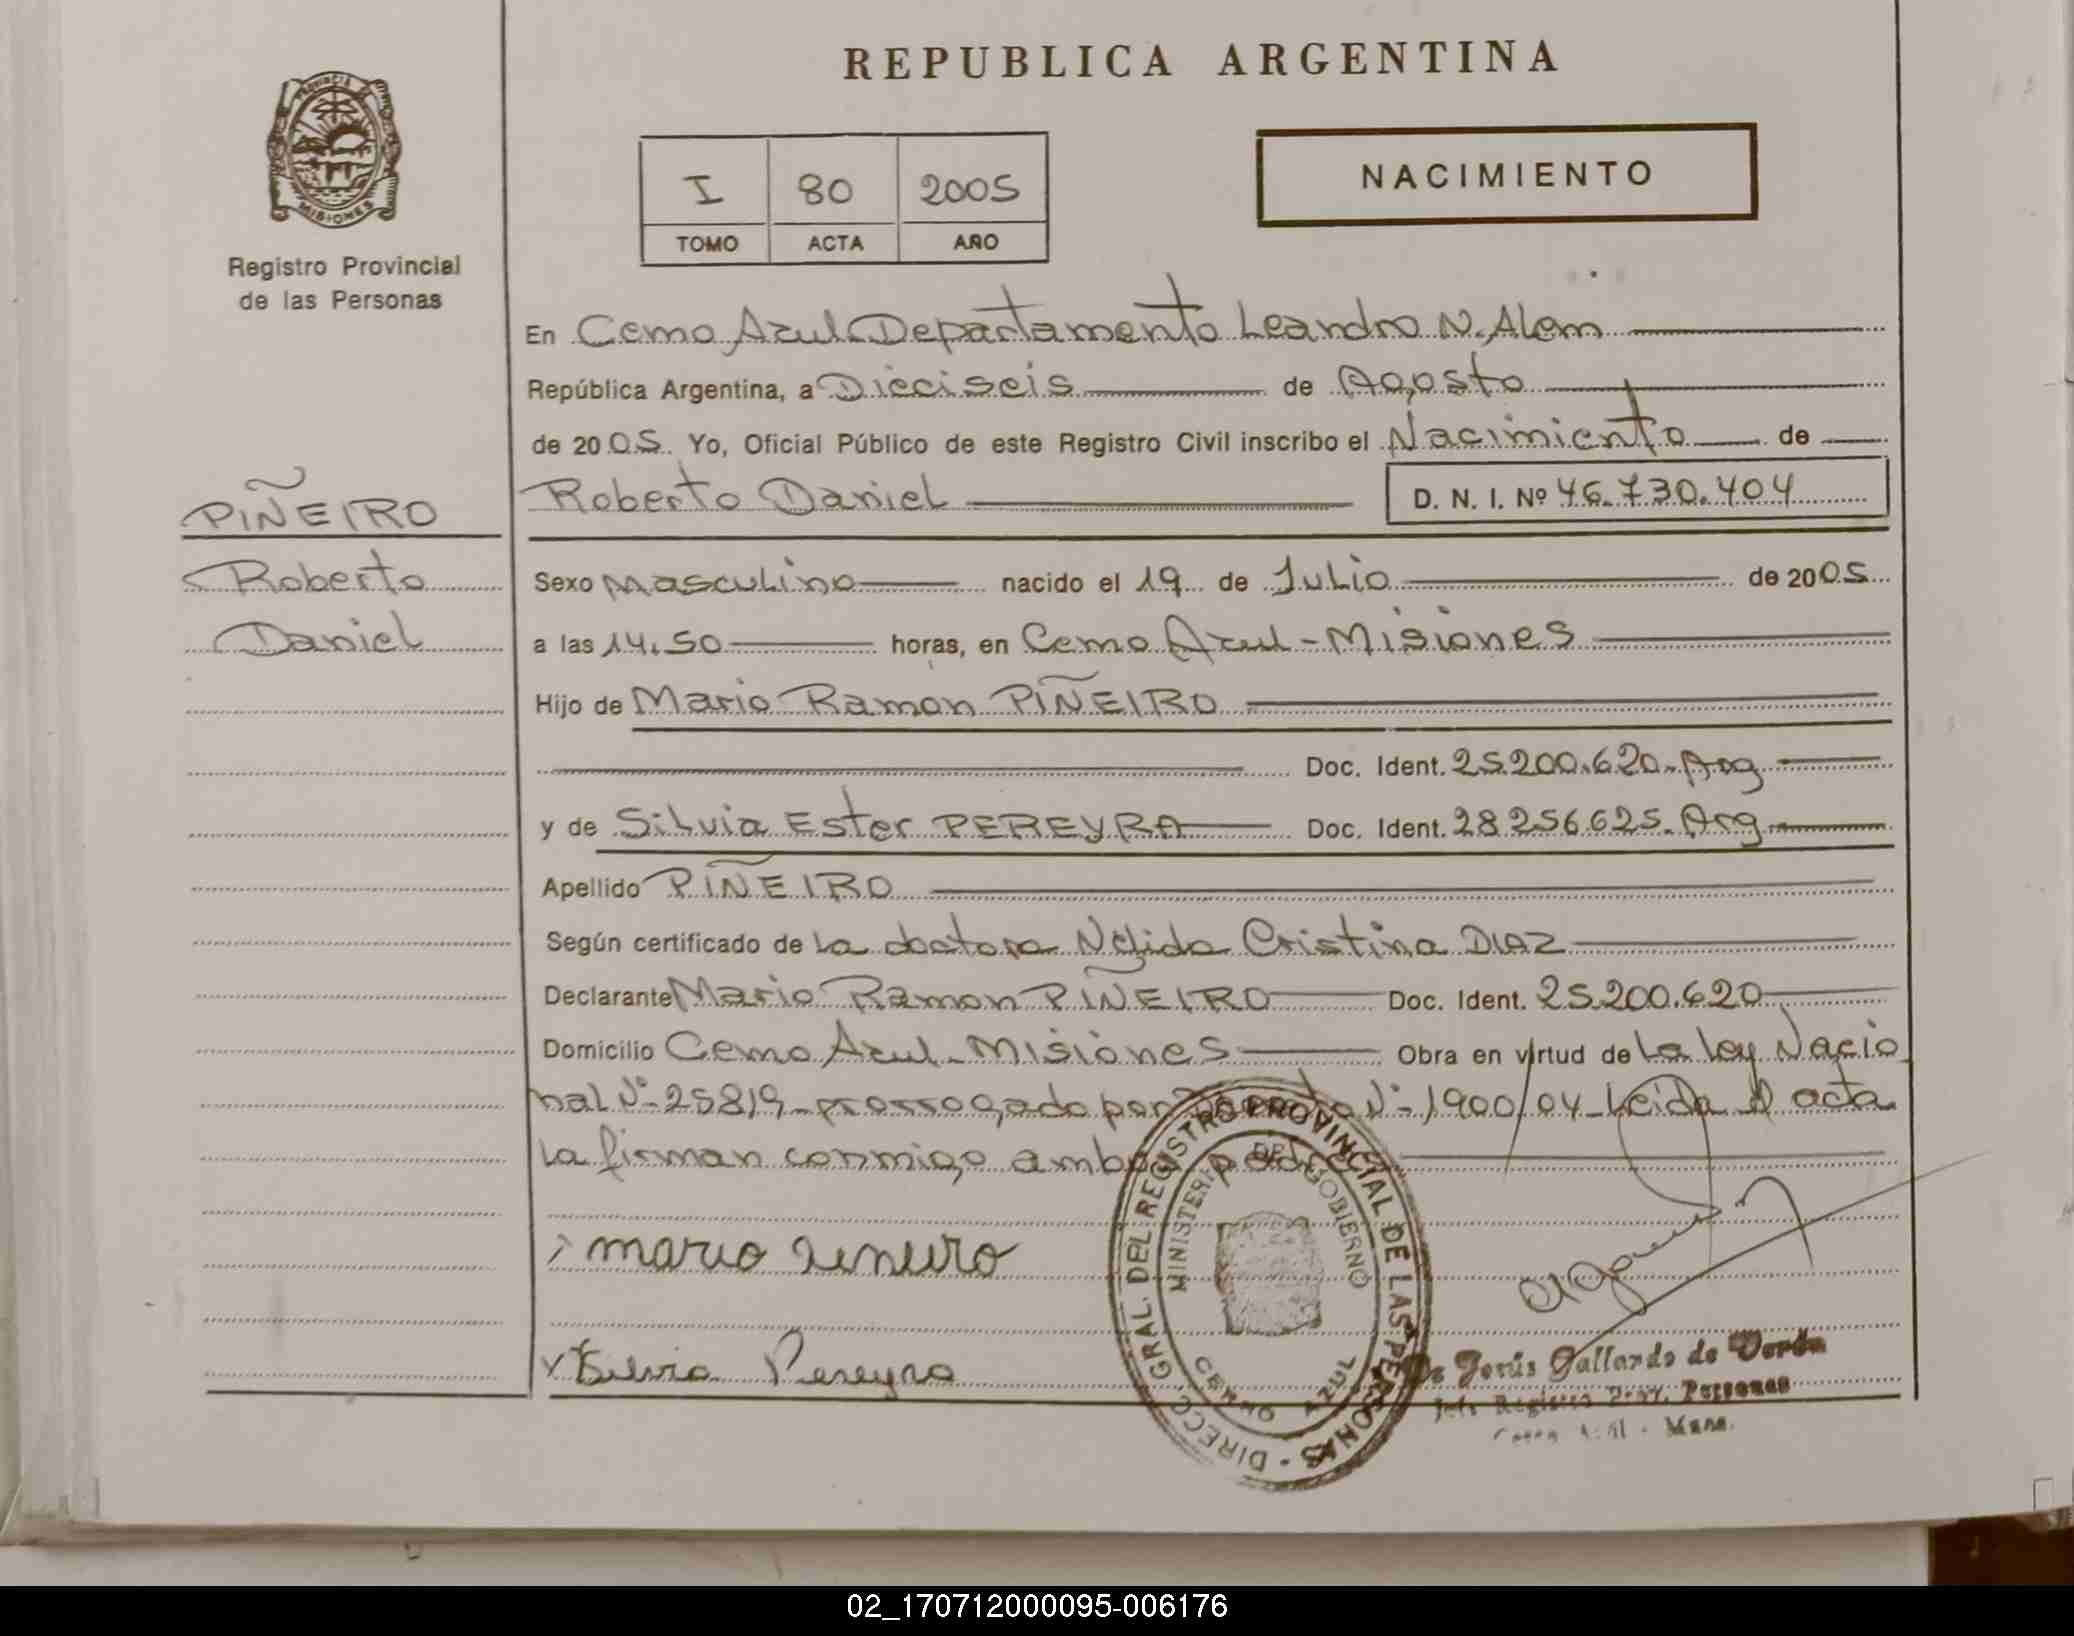 REPUBLICA ARGENTINA
PROVINCIA DE MISIONES
Registro Provincial
de las Personas
I 80 2005
TOMO ACTA AÑO
NACIMIENTO
En Cerro Azul Departamento Leandro N. Alem
República Argentina, a Dieciseis de Agosto
de 2005. Yo, Oficial Público de este Registro Civil inscribo el Nacimiento de
Roberto Daniel D. N. I. Nº 46.730.404
PIÑEIRO
Roberto
Daniel
Sexo Masculino nacido el 19 de Julio de 2005
a las 14.50 horas, en Cerro Azul - Misiones
Hijo de Mario Ramon PIÑEIRO
Doc. Ident. 25.200.620. Arg
y de Silvia Ester PEREYRA Doc. Ident. 28.256.625. Arg
Apellido PIÑEIRO
Según certificado de La doctora Nélida Cristina DIAZ
Declarante Mario Ramon PIÑEIRO Doc. Ident. 25.200.620
Domicilio Cerro Azul - Misiones Obra en virtud de La ley Nacio
nal Nº 25819 prorrogado por Nº 1900/04 - Leida el acta
La firman conmigo ambos padres
mario
Silvia Pereyra
DIRECC. GRAL. DEL REGISTRO PROVINCIAL DE LAS PERSONAS
MINISTERIO DE GOBIERNO
CERRO AZUL
de Jesús Gallardo de
Jefe Registro Prov. Personas
Cerro Azul - Mnes.
02_170712000095-006176